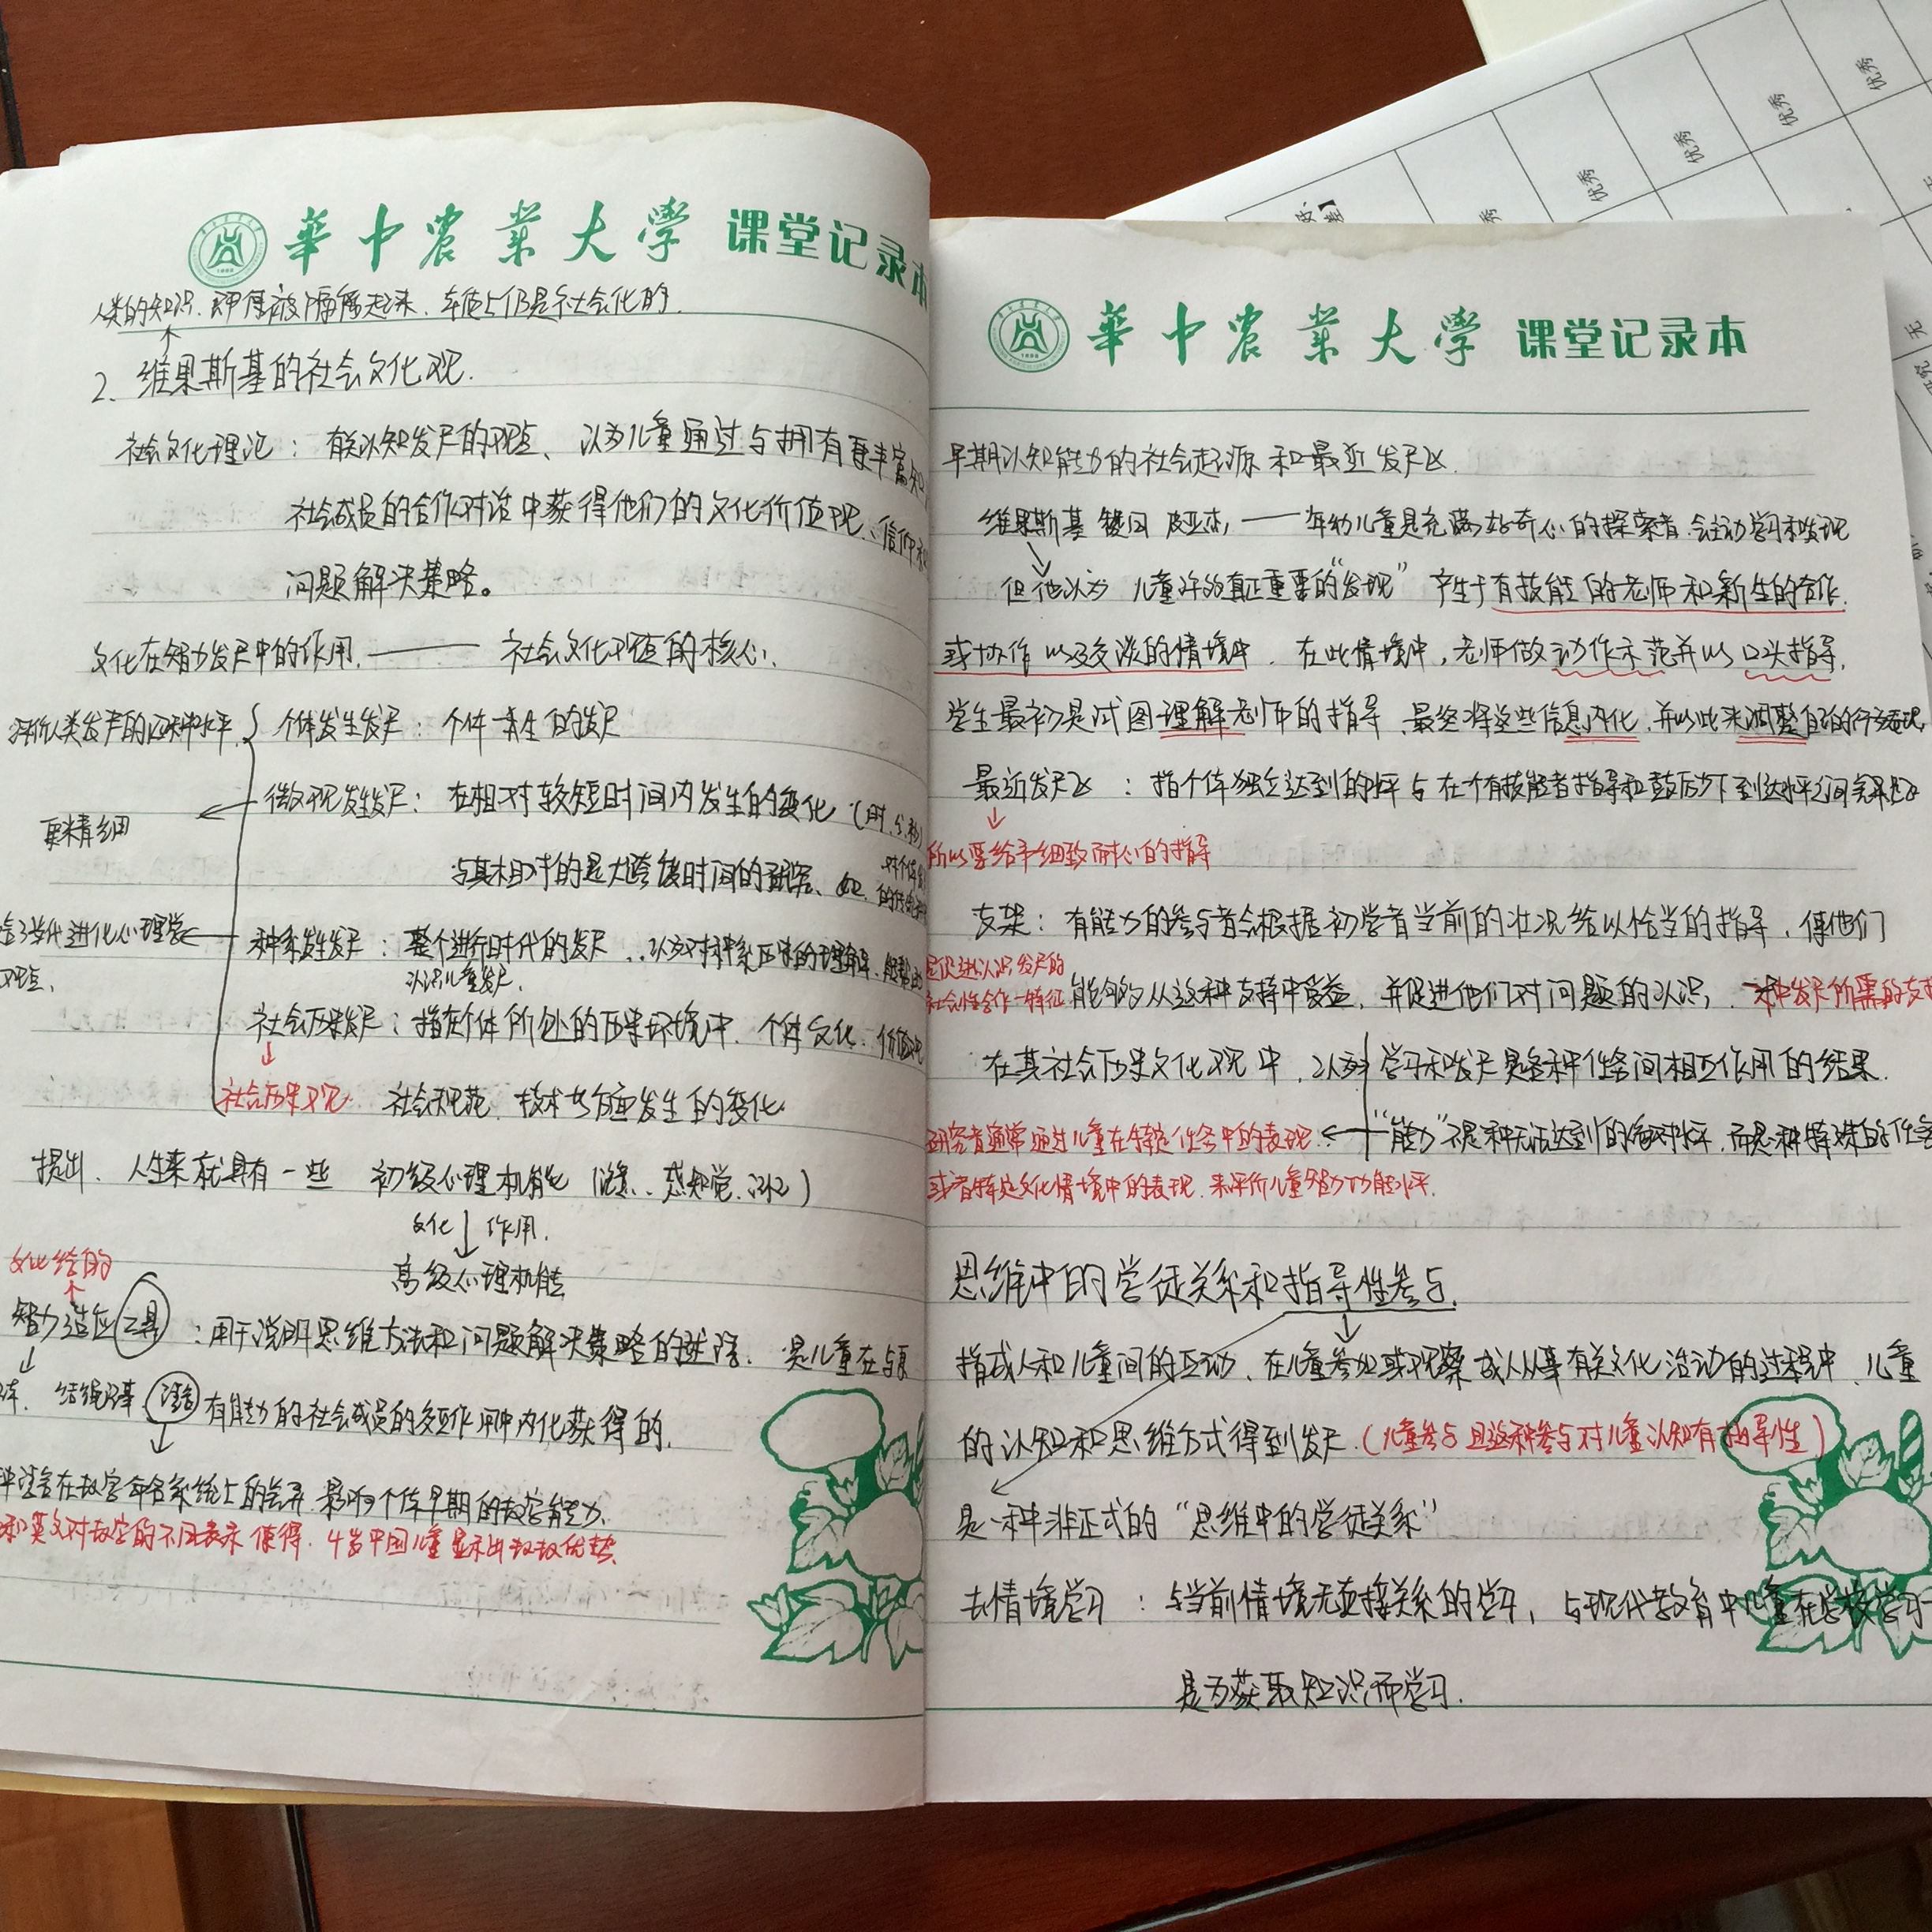 華中農業大学 课堂记录本
人类的知识.即便被隔离起来.本质上仍是社会化的.
2、维果斯基的社会文化观.
社会文化理论：有关认知发展的观点、认为儿童通过与拥有更丰富知
社会成员的合作对话中获得他们的文化价值观、信仰和
问题解决策略。
文化在智力发展中的作用.—— 社会文化观点的核心.
评价人类发展的四种水平 个体发生发展：个体一生的发展
微观发生发展：在相对较短时间内发生的变化（时.分.秒）
更精细
与其相对的是大跨度时间的研究、如.
当代进化心理学 种系发生发展：整个进行时代的发展..认为对种系历来的理解.能帮助
观点. 认识儿童发展.
社会历史发展：指在个体所处的历史环境中.个体文化.价值观
社会历史观 社会规范.技术等方面发生的变化.
提出.人生来就具有一些 初级心理机能（注意..感知觉.记忆）
文化 作用.
高级心理机能
文化给的
智力适应工具：用于说明思维方法和问题解决策略的述语. 是儿童在与更
结绳记事 语言 有能力的社会成员的交互作用中内化获得的.
种语言在数字命名系统上的差异.影响个体早期的数学能力.
和英文对数字的不同表示使得.4岁中国儿童显示出数数优势.
華中農業大学 课堂记录本
早期认知能力的社会起源和最近发展区.
维果斯基 赞同 皮亚杰，—— 年幼儿童是充满好奇心的探索者.会主动学习和发现
但他认为 儿童许多真正重要的“发现” 产生于有技能的老师和新生的合作.
或协作以及交谈的情境中. 在此情境中，老师做动作示范并以口头指导.
学生最初是试图理解老师的指导.最终将这些信息内化.并以此来调整自己的行为表现.
最近发展区 ：指个体独立达到的水平与在个有技能者指导和鼓励下到达水平之间
所以要给予细致而耐心的指导
支架：有能力的参与者会根据初学者当前的状况给以恰当的指导，使他们
是促进认识发展的
社会性合作一特征 能够从这种支持中受益.并促进他们对问题的认识，一种发展所需的支
在其社会历史文化观中.认为 学习和发展是各种任务间相互作用的结果.
研究者通常通过儿童在特定任务中的表现. “能力”不是种无法达到的绝对水平.而是一种特殊的任务
或者特定文化情境中的表现.来评价儿童智力功能水平.
思维中的学徒关系和指导性参与.
指成人和儿童间的互动.在儿童参加或观察成人从事有关文化活动的过程中.儿童
的认知和思维方式得到发展.（儿童参与且这种参与对儿童认知有指导性）
是一种非正式的“思维中的学徒关系”
去情境学习：与当前情境无直接关系的学习，与现代教育中儿童在学校学习一
是为获取知识而学习.
优秀
优秀
优秀
优秀
秀
无